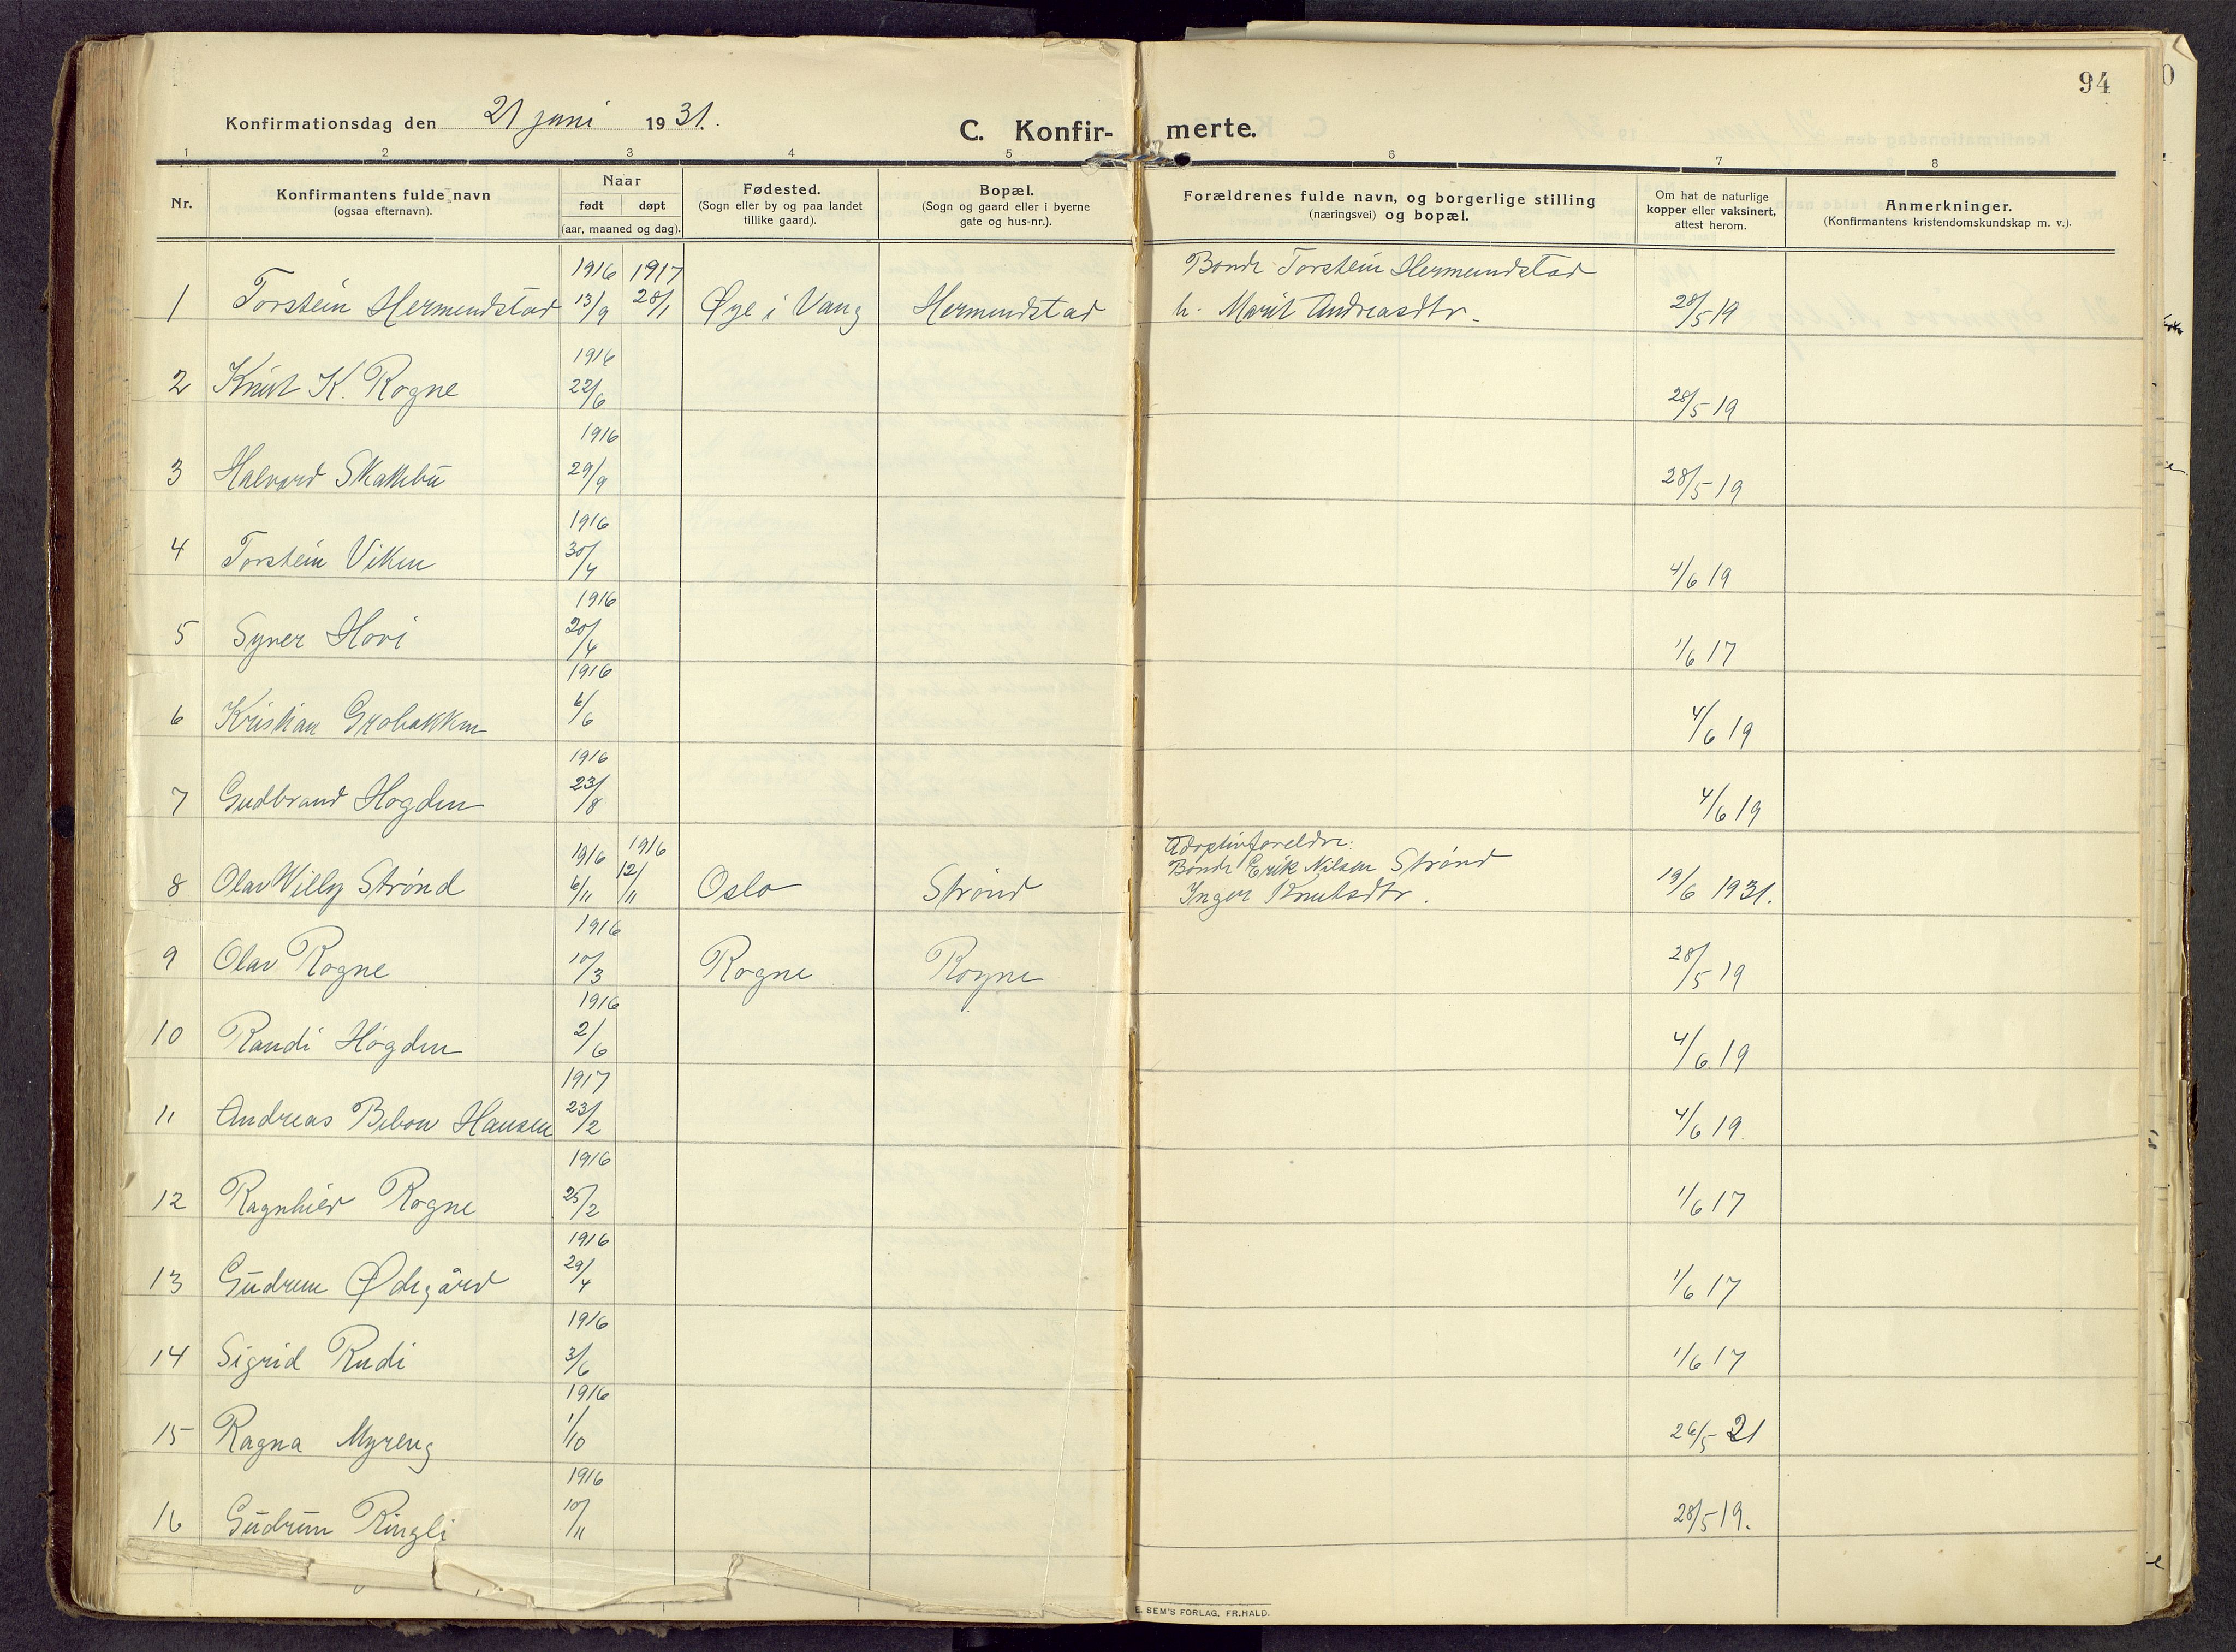 94
Konfirmationsdag den 21 juni 1931.
C. Konfir- merte.
1 2 3 4 5 6 7 8
Nr.
Konfirmantens fulde navn
(ogsaa efternavn).
Naar
født døpt
(aar, maaned og dag).
Fødested.
(Sogn eller by og paa landet
tillike gaard).
Bopæl.
(Sogn og gaard eller i byerne
gate og hus-nr.).
Forældrenes fulde navn, og borgerlige stilling
(næringsvei) og bopæl.
Om hat de naturlige
kopper eller vaksinert,
attest herom.
Anmerkninger.
(Konfirmantens kristendomskundskap m. v.).
1916 1917 Bonde Torstein Hermundstad
1 Torstein Hermundstad 13/9 28/1 Øye i Vang Hermundstad h. Marit Andreasdtr. 28/5 19
1916
2 Knut K. Rogne 22/6 28/5 19
1916
3 Halvard Skakkbu 29/9 28/5 19
1916
4 Torstein Viken 30/4 4/6 19
1916
5 Syver Hovi 20/4 1/6 17
1916
6 Kristian Grobakken 6/6 4/6 19
1916
7 Gudbrand Høgden 23/8 4/6 19
Adoptivforeldre:
1916 1916 Bonde Erik Nilsen Strönd
8 Olav Willy Strönd 6/11 12/11 Oslo Strönd Inger Knutsdtr. 19/6 1931.
1916
9 Olav Rogne 10/3 Rogne Rogne 28/5 19
1916
10 Randi Høgden 2/6 4/6 19
1917
11 Andreas Bebow Hansen 23/2 4/6 19.
1916
12 Ragnhild Rogne 25/2 1/6 17
1916
13 Gudrun Ødegård 29/4 1/6 17
1916
14 Sigrid Rudi 3/6 1/6 17
1916
15 Ragna Myreng 1/10 26/5 21
1916
16 Gudrun Ringli 10/11 28/5 19.
E. SEM'S FORLAG, FR.HALD.